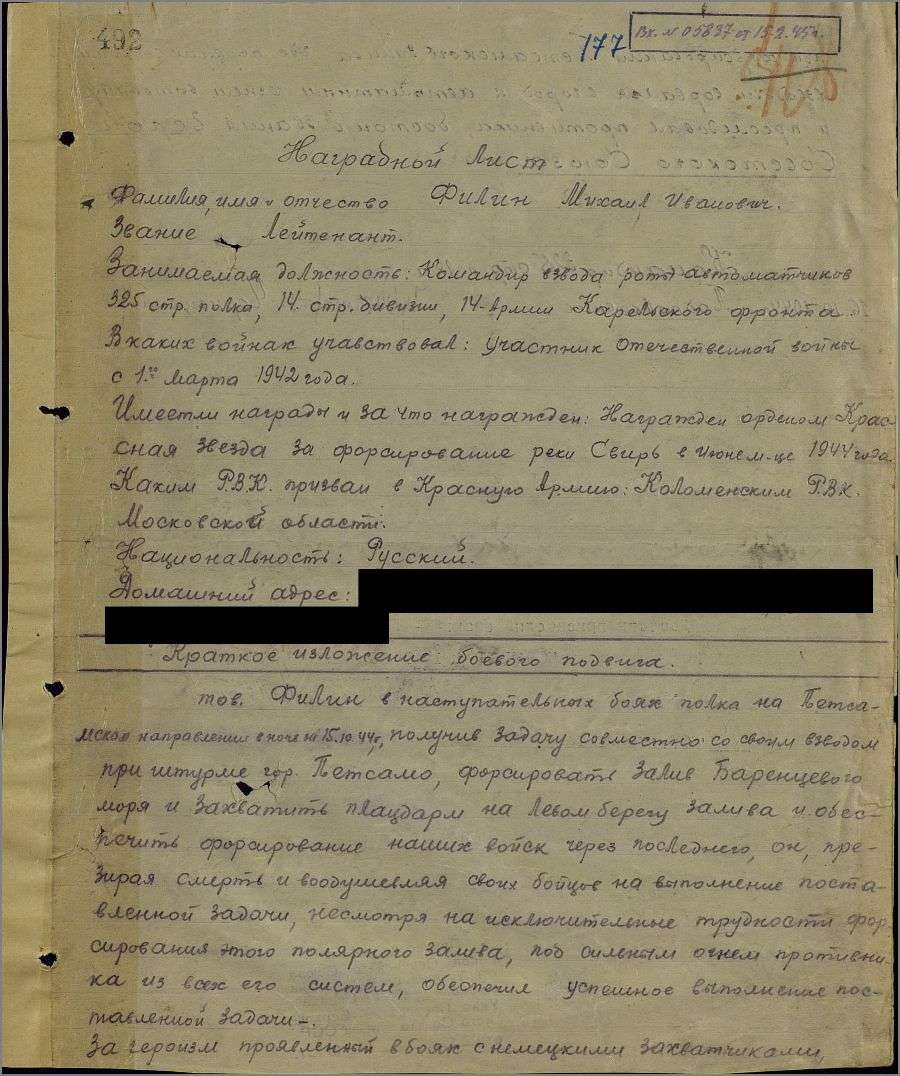 492
177
Вх. № 05837 от 15.2.45г.
Наградной Лист
Фамилия, имя и отчество Филин Михаил Иванович.
Звание Лейтенант.
Занимаемая должность: Командир взвода роты автоматчиков
325 стр. полка, 14. стр. дивизии, 14-Армии Карельского фронта.
В каких войнах учавствовал: Участник Отечественной войны
с 1го марта 1942 года.
Имеет ли награды и за что награжден: Награжден орденом Крас-
сная звезда за форсирование реки Свирь в июнем-це 1944 года.
Каким Р.В.К. призван в Красную Армию: Коломенским Р.В.К.
Московской области.
Национальность: Русский.
Домашний адрес:
Краткое изложение боевого подвига.
тов. Филин в наступательных боях полка на Петса-
мском направлении в ночь на 15.10.44г, получив задачу совместно со своим взводом
при штурме гор. Петсамо, форсировать залив Баренцевого
моря и захватить плацдарм на левом берегу залива и обес-
печить форсирование наших войск через последнего, он, пре-
зирая смерть и воодушевляя своих бойцов на выполнение поста-
вленной задачи, несмотря на исключительные трудности фор
сирования этого полярного залива, под сильным огнем противни-
ка из всех его систем, обеспечил успешное выполнение пос-
тавленной задачи-.
За героизм проявленный в боях с немецкими захватчиками,